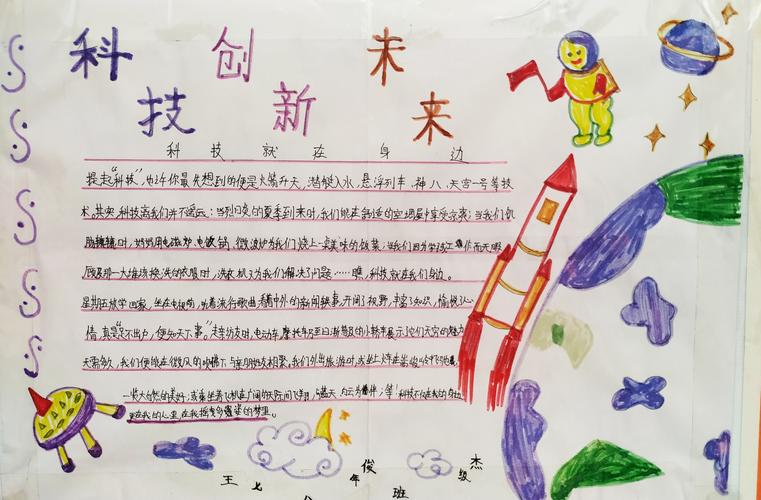 科 创 未
技 新 来
科 技 就 在 身 边
提起“科技”,也许你最先想到的便是火箭升天,潜艇入水,悬浮列车,神八、天宫一号等技
术。其实,科技离我们并不遥远:当烈日炎的夏季到来时,我们能在舒适的空调屋中享受凉爽;当我们饥
肠辘辘时,妈妈用电磁炉,电饭锅,微波炉为我们烧上一桌美味的饭菜;当我们因为学校工作而无暇
顾及那一大堆该换洗的衣服时,洗衣机又为我们解决了问题……瞧,科技就在我们身边。
星期五放学回家,坐在电视前,听着流行歌曲看中外的新闻轶事,开阔了视野,丰富了知识,愉悦了心
情,真是“足不出户,便知天下事。”走亲访友时,电动车,摩托车乃至日渐普及的小轿车展示了它们的魅力
天需多久,我们便能在微风的吹拂下与亲朋好友相聚。我们外出旅游时,或坐上火车
一览大自然的美好;或乘坐着飞机在广阔的天际间飞翔,蓝天,白云为伴;等!科技不仅在我的身边
更在我的心里,在我摇曳多姿的梦里。
王 七 年 俊 级 杰
八 班